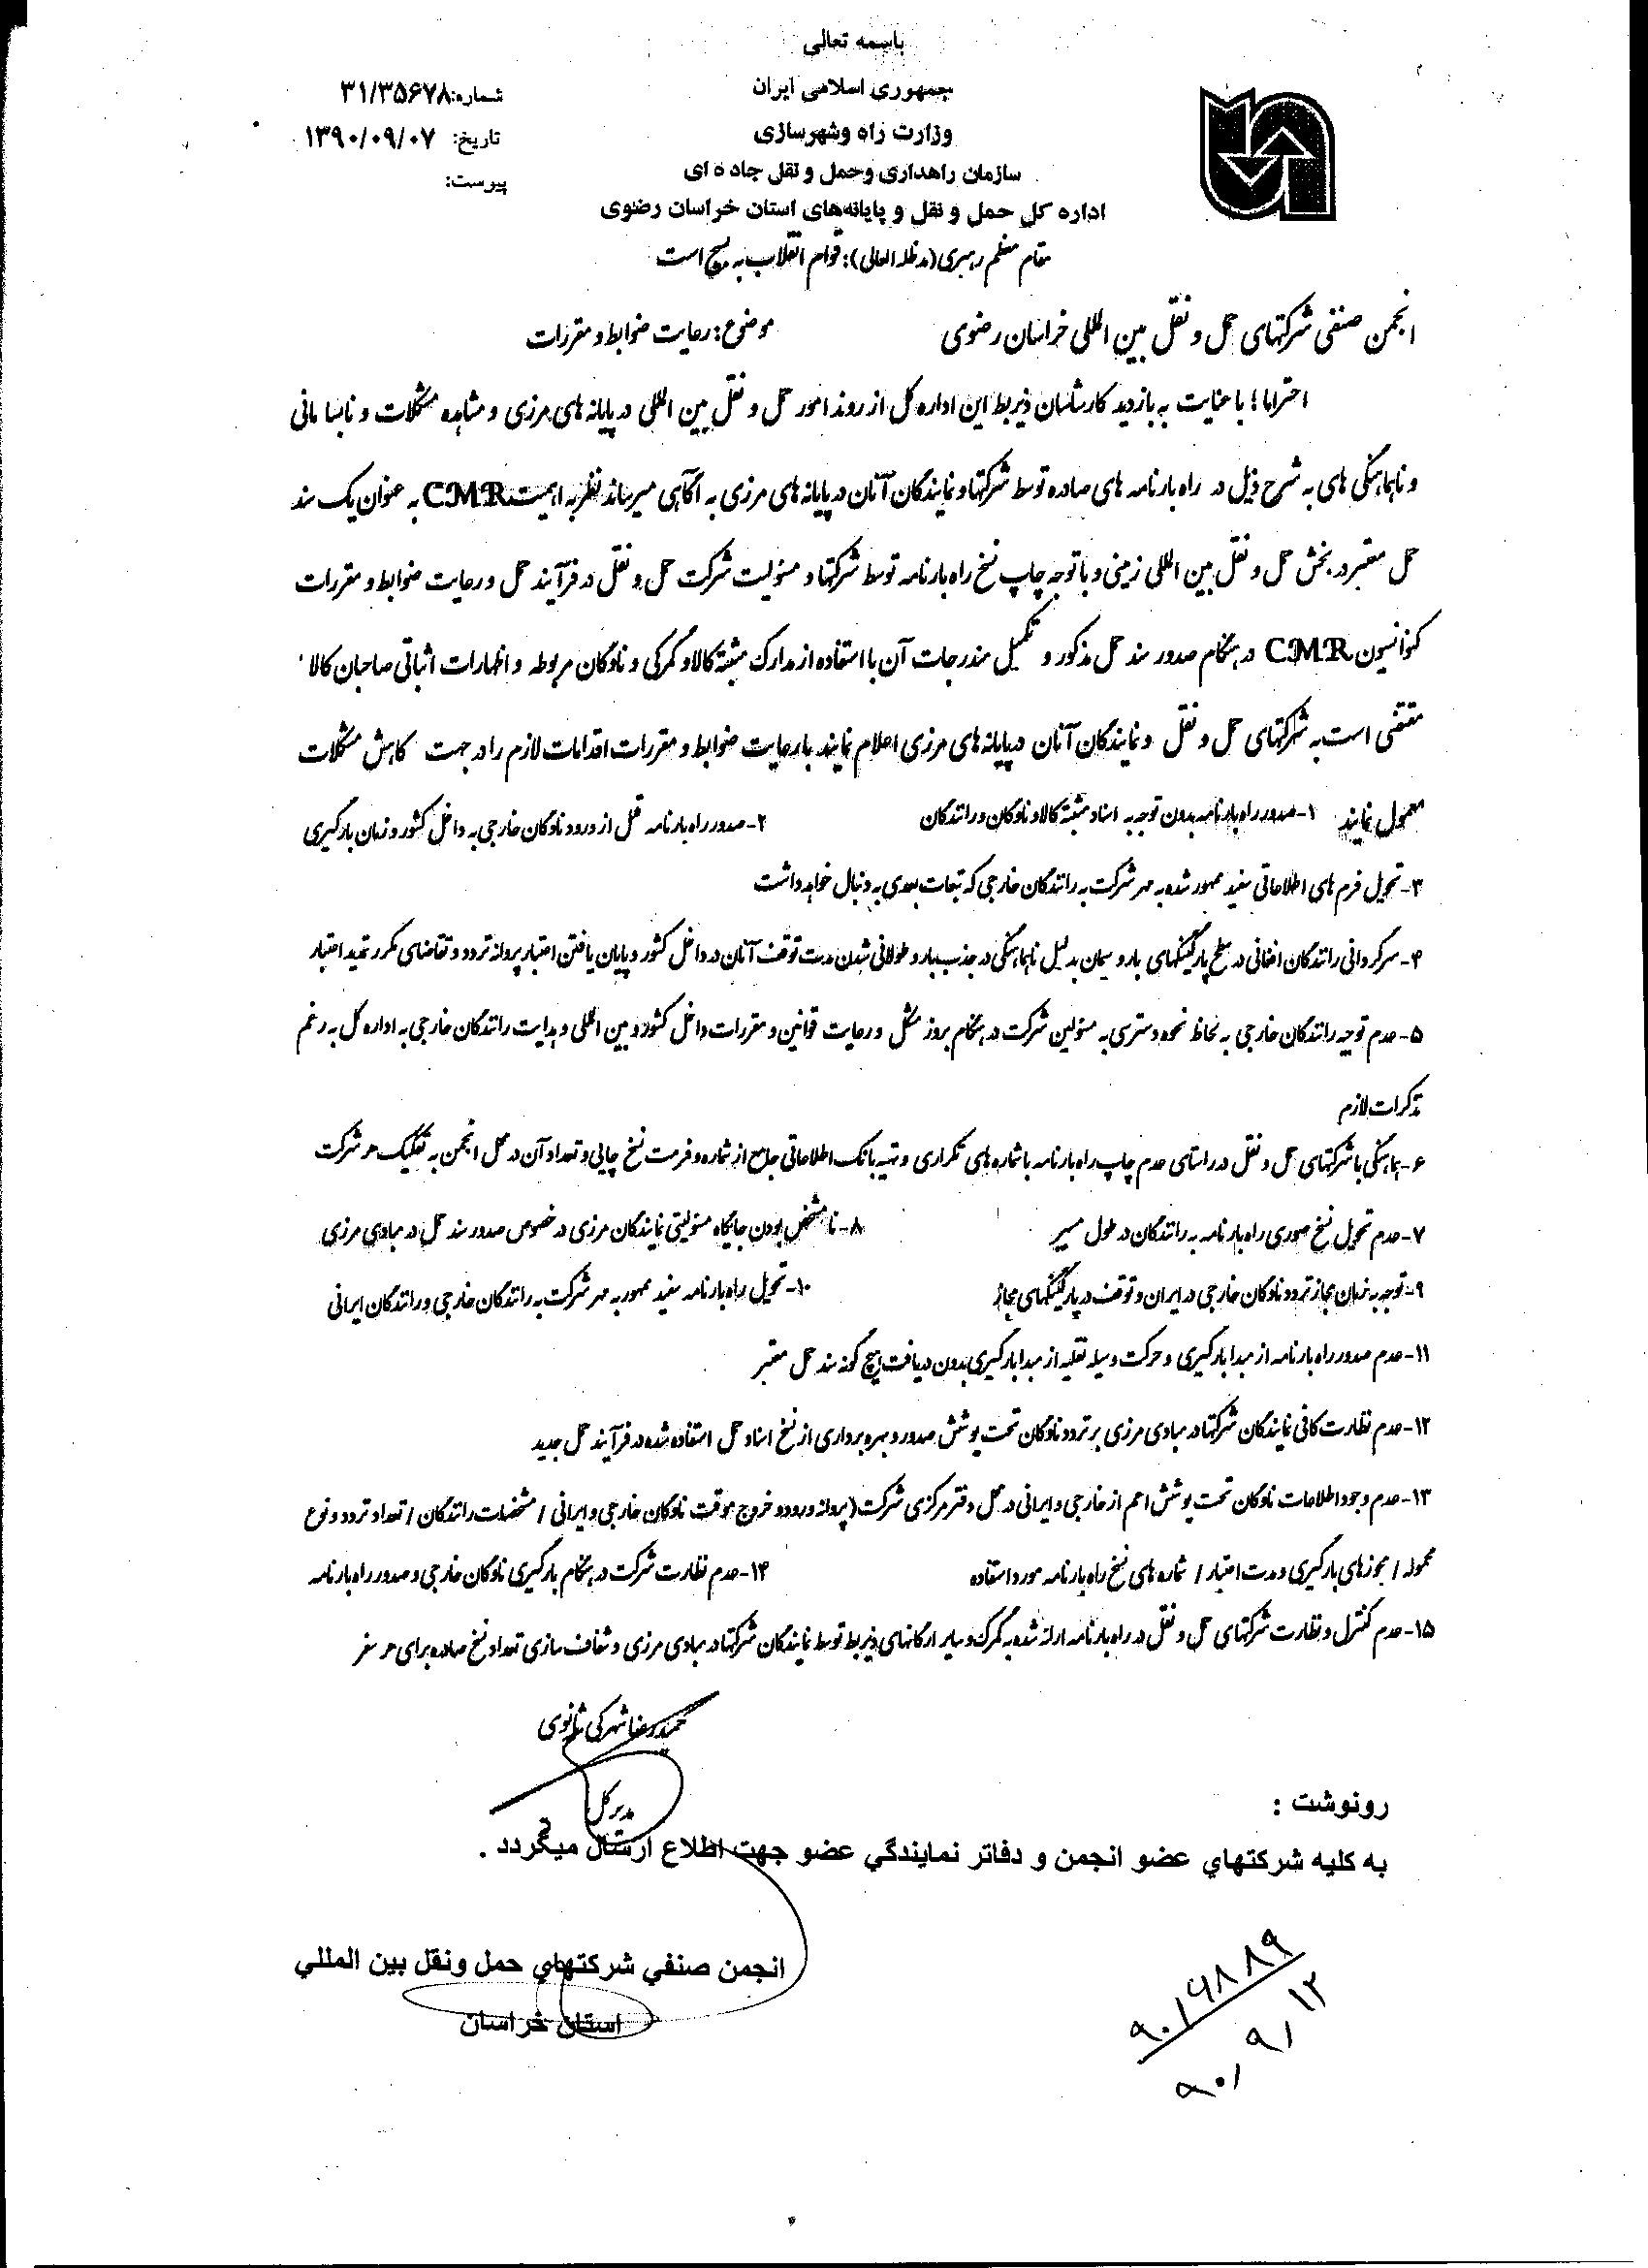 باسمه تعالی
جمهوری اسلامی ایران
وزارت راه وشهرسازی
سازمان راهداری وحمل و نقل جاده ای
اداره کل حمل و نقل و پایانه‌های استان خراسان رضوی
شماره: ۳۱/۳۵۶۷۸
تاریخ: ۱۳۹۰/۰۹/۰۷
پیوست:
مقام معظم رهبری (مدظله العالی): قوام انقلاب به بسیج است
انجمن صنفی شرکتهای حمل و نقل بین المللی خراسان رضوی
موضوع: رعایت ضوابط و مقررات
احتراما؛ با عنایت به بازدید کارشناسان ذیربط این اداره کل از روند امور حمل و نقل بین المللی در پایانه های مرزی و مشاهده مشکلات و نابسامانی
و ناهماهنگی های به شرح ذیل در راه بارنامه های صادره توسط شرکتها و نمایندگان آنان در پایانه های مرزی به آگاهی میرساند نظر به اهمیت CMR به عنوان یک سند
حمل معتبر در بخش حمل و نقل بین المللی زمینی و با توجه چاپ نسخ راه بارنامه توسط شرکتها و مسئولیت شرکت حمل و نقل در فرآیند حمل و رعایت ضوابط و مقررات
کنوانسیون CMR در هنگام صدور سند حمل مذکور و تکمیل مندرجات آن با استفاده از مدارک مثبته کالا و گمرکی و ناوگان مربوطه و اظهارات اثباتی صاحبان کالا
مقتضی است به شرکتهای حمل و نقل و نمایندگان آنان در پایانه های مرزی اعلام نمایند با رعایت ضوابط و مقررات اقدامات لازم را در جهت کاهش مشکلات
معمول نمایند ۱- صدور راه بارنامه بدون توجه به اسناد مثبته کالا و ناوگان و رانندگان ۲- صدور راه بارنامه قبل از ورود ناوگان خارجی به داخل کشور و زمان بارگیری
۳- تحویل فرم های اطلاعاتی سفید ممهور شده به مهر شرکت به رانندگان خارجی که تبعات بعدی به دنبال خواهد داشت
۴- سرگردانی رانندگان افغانی در سطح پارکینگهای بار و سیمان بدلیل ناهماهنگی در جذب بار و طولانی شدن مدت توقف آنان در داخل کشور و پایان یافتن اعتبار پروانه تردد و تقاضای مکرر تمدید اعتبار
۵- عدم توجیه رانندگان خارجی به لحاظ نحوه دسترسی به مسئولین شرکت در هنگام بروز مشکل و رعایت قوانین و مقررات داخل کشور و بین المللی و هدایت رانندگان خارجی به اداره کل به رغم
تذکرات لازم
۶- هماهنگی با شرکتهای حمل و نقل در راستای عدم چاپ راه بارنامه با شماره های تکراری و تهیه بانک اطلاعاتی جامع از شماره و فرمت نسخ چاپی و تعداد آن در محل انجمن به تفکیک هر شرکت
۷- عدم تحویل نسخ صوری راه بارنامه به رانندگان در طول مسیر ۸- نامشخص بودن جایگاه مسئولیتی نمایندگان مرزی در خصوص صدور سند حمل در مبادی مرزی
۹- توجه به زمان مجاز تردد ناوگان خارجی در ایران و توقف در پارکینگهای مجاز ۱۰- تحویل راه بارنامه سفید ممهور به مهر شرکت به رانندگان خارجی و رانندگان ایرانی
۱۱- عدم صدور راه بارنامه از مبدا بارگیری و حرکت وسیله نقلیه از مبدا بارگیری بدون دریافت هیچ گونه سند حمل معتبر
۱۲- عدم نظارت کافی نمایندگان شرکتها در مبادی مرزی بر تردد ناوگان تحت پوشش صدور و بهره برداری از نسخ اسناد حمل استفاده شده در فرآیند حمل جدید
۱۳- عدم وجود اطلاعات ناوگان تحت پوشش اعم از خارجی و ایرانی در محل دفتر مرکزی شرکت (پروانه ورود و خروج موقت ناوگان خارجی و ایرانی / مشخصات رانندگان / تعداد تردد و نوع
محموله / مجوزهای بارگیری و مدت اعتبار / شماره های نسخ راه بارنامه مورد استفاده ۱۴- عدم نظارت شرکت در هنگام بارگیری ناوگان خارجی و صدور راه بارنامه
۱۵- عدم کنترل و نظارت شرکتهای حمل و نقل در راه بارنامه ارائه شده به گمرک و سایر ارگانهای ذیربط توسط نمایندگان شرکتها در مبادی مرزی و شفاف سازی تعداد نسخ صادره برای هر سفر
حمیدرضا شهرکی ثانوی
مدیر کل
رونوشت :
به کلیه شرکتهاي عضو انجمن و دفاتر نمایندگي عضو جهت اطلاع ارسال میگردد .
انجمن صنفي شرکتهاي حمل ونقل بین المللي
استان خراسان
۹۰/۶۸۸۹
۹۰/۹/۱۲